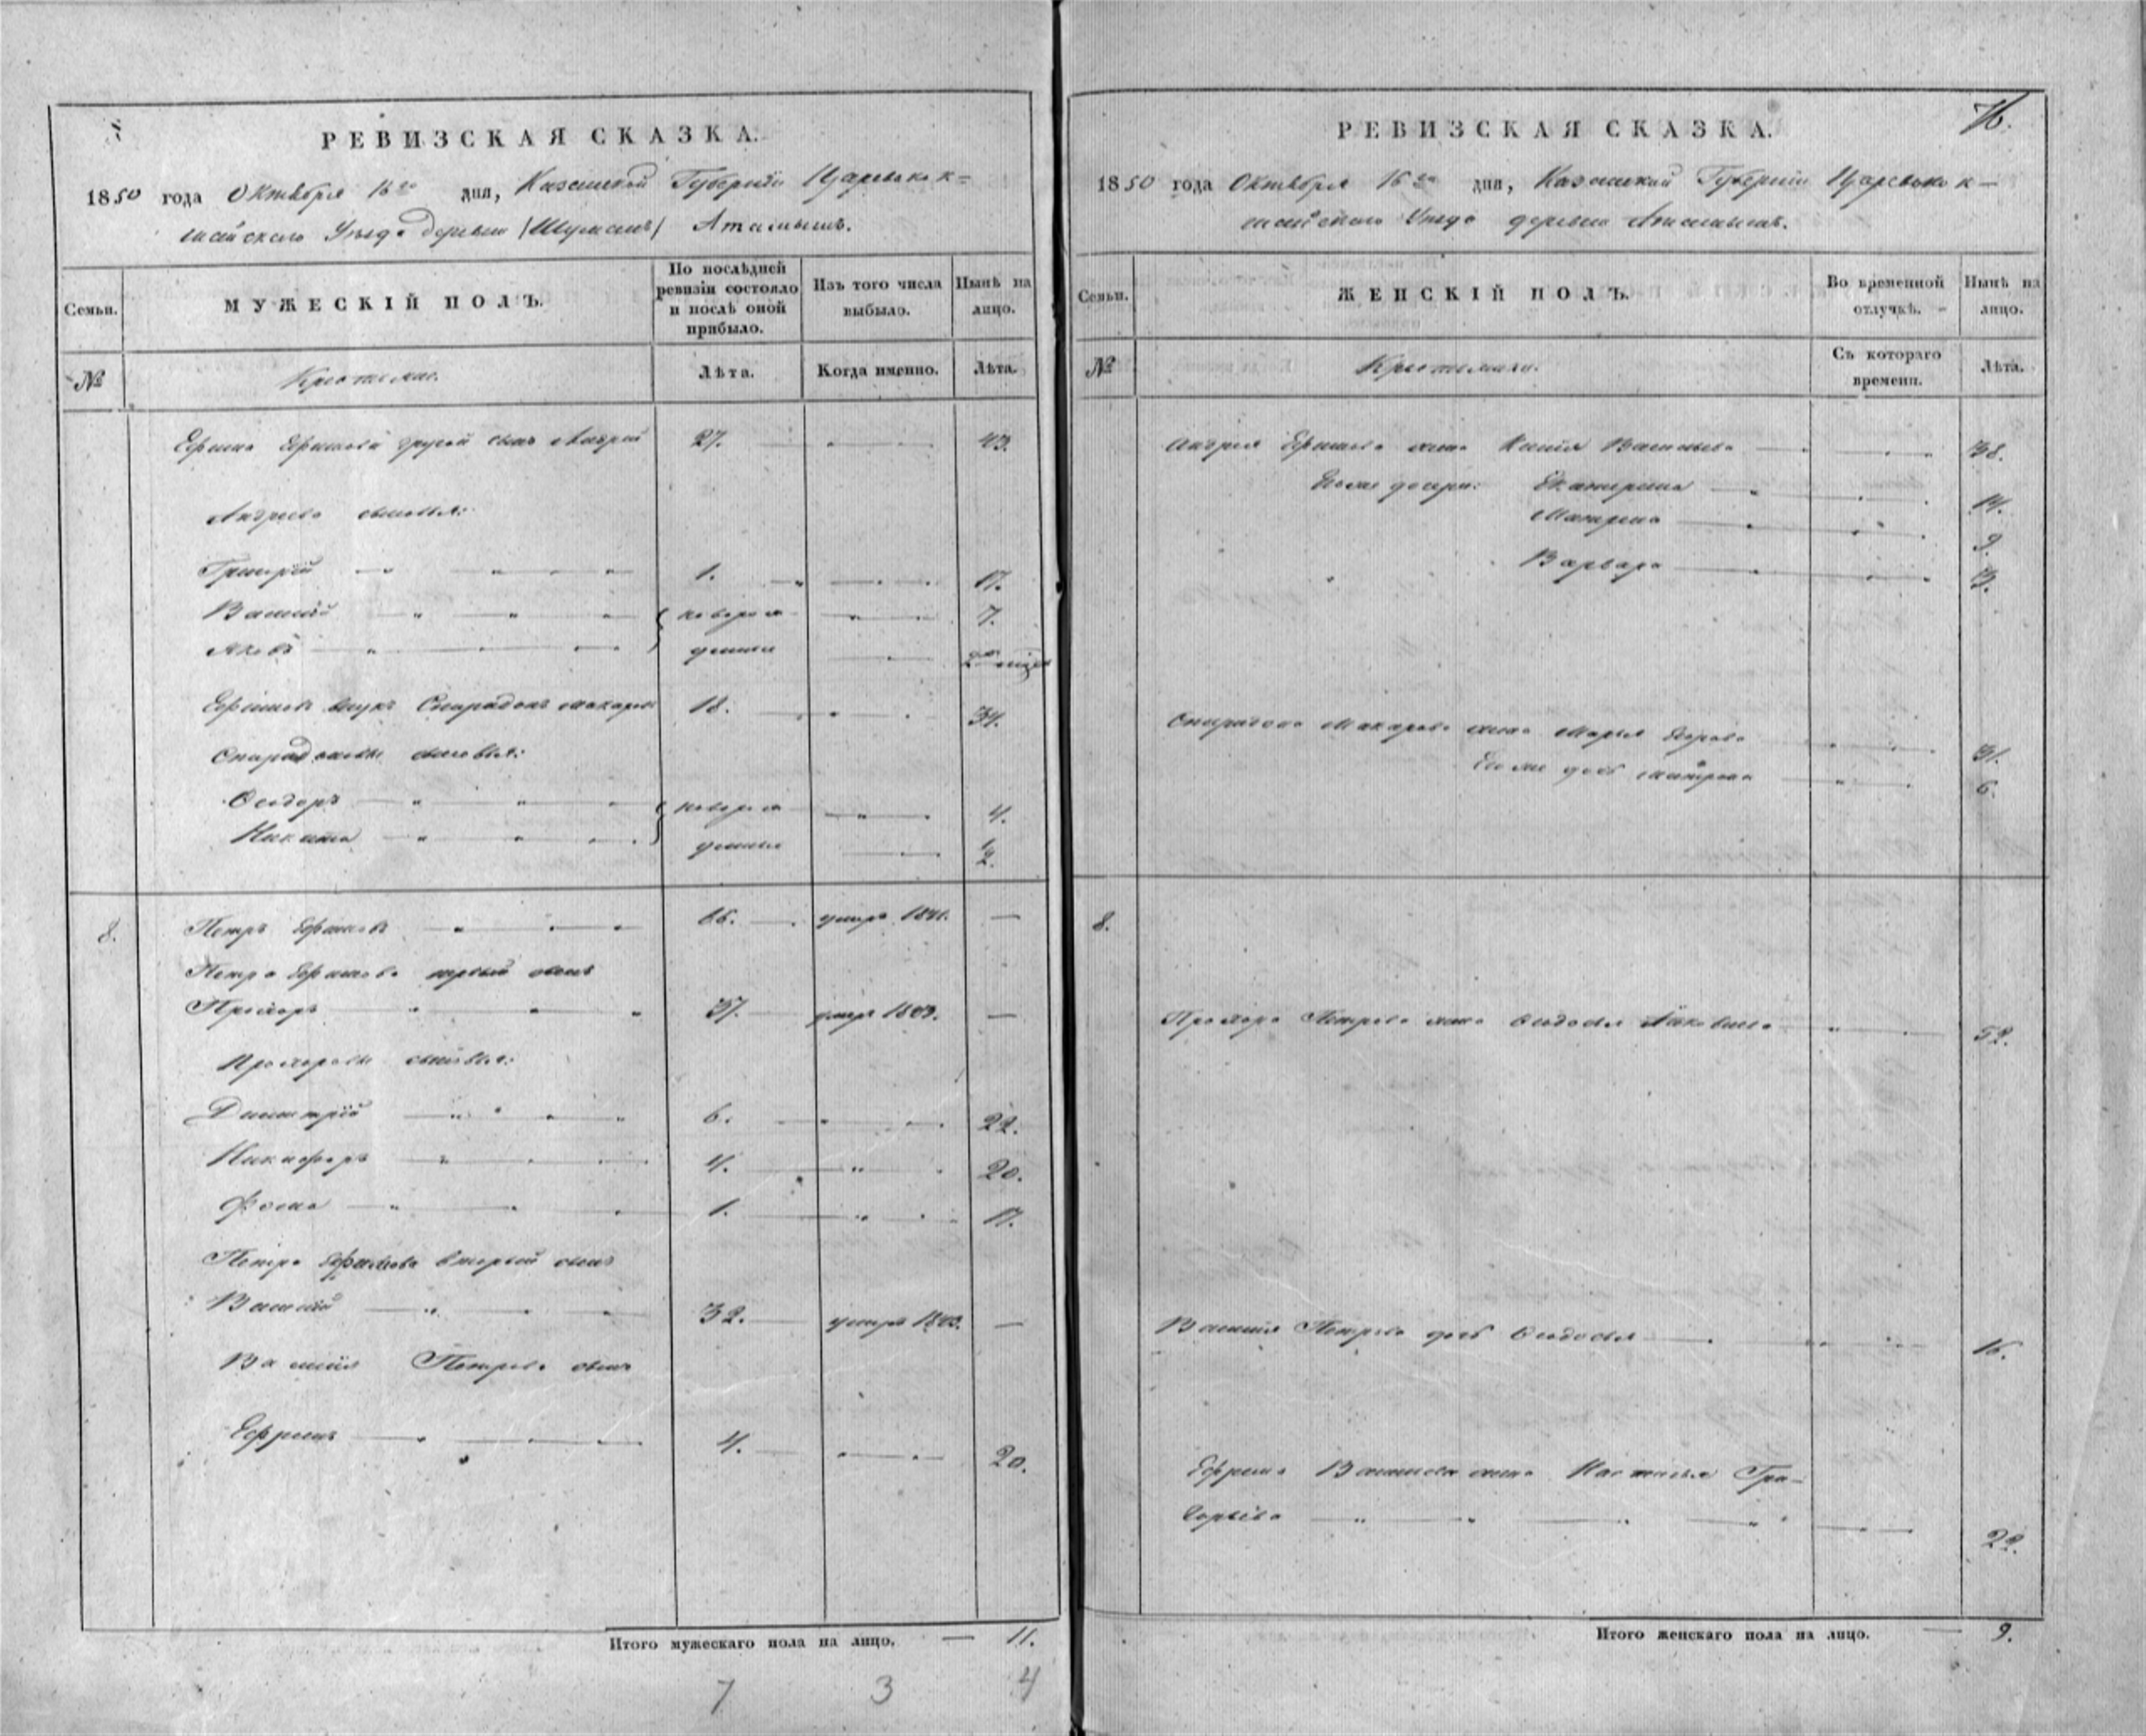 РЕВИЗСКАЯ СКАЗКА.
1850 года Октября 16го дня, Казанской Губернии Царевокок=
шайскаго Уѣзда деревни (Шуманъ) Аталышъ.
Семьи.
МУЖЕСКІЙ ПОЛЪ.
По послѣдней ревизіи состояло и послѣ оной прибыло.
Изъ того числа выбыло.
Нынѣ на лицо.
№
Лѣта.
Когда именно.
Лѣта.
Ефима Ефимова другой сынъ Андрей 27. 43.
Андрея сыновья:
Григорій 1. 17.
Василій новорож 7.
Яковъ денные
Ефимовъ внукъ Спиридонъ Макаровъ 18. 34.
Спиридоновы сыновья:
Ѳеодоръ новорож 4.
Никита денные 1/2.
8. Петръ Ефимовъ 66. умеръ 1841. —
Петра Ефимова первый сынъ
Прохоръ 37. умеръ 1843. —
Прохоровы сыновья:
Дмитрій 6. 22.
Никифоръ 4. 20.
Фома 1. 17.
Петра Ефимова вторый сынъ
Василій 32. умеръ 1843. —
Василія Петрова сынъ
Ефремъ 4. 20.
Итого мужескаго пола на лицо. — 11.
7 3 4
76.
РЕВИЗСКАЯ СКАЗКА.
1850 года Октября 16го дня, Казанской Губерніи Царевокок—
шайскаго Уѣзда деревни Аталышъ.
Семьи.
ЖЕНСКІЙ ПОЛЪ.
Во временной отлучкѣ.
Нынѣ на лицо.
№
Съ котораго времени.
Лѣта.
Андрея Ефимова жена Васильева 38.
Его же дочери: Екатерина 14.
Матрена 9.
Варвара 3.
Спиридона Макарова жена Марья 31.
Его же дочь Матрена 6.
8.
Прохора Петрова жена Ѳеодосья Яковлева 52.
Василія Петрова дочь Ѳеодосья 16.
Ефрема Васильева жена Настасья Гри-
горьева 22.
Итого женскаго пола на лицо. — 9.